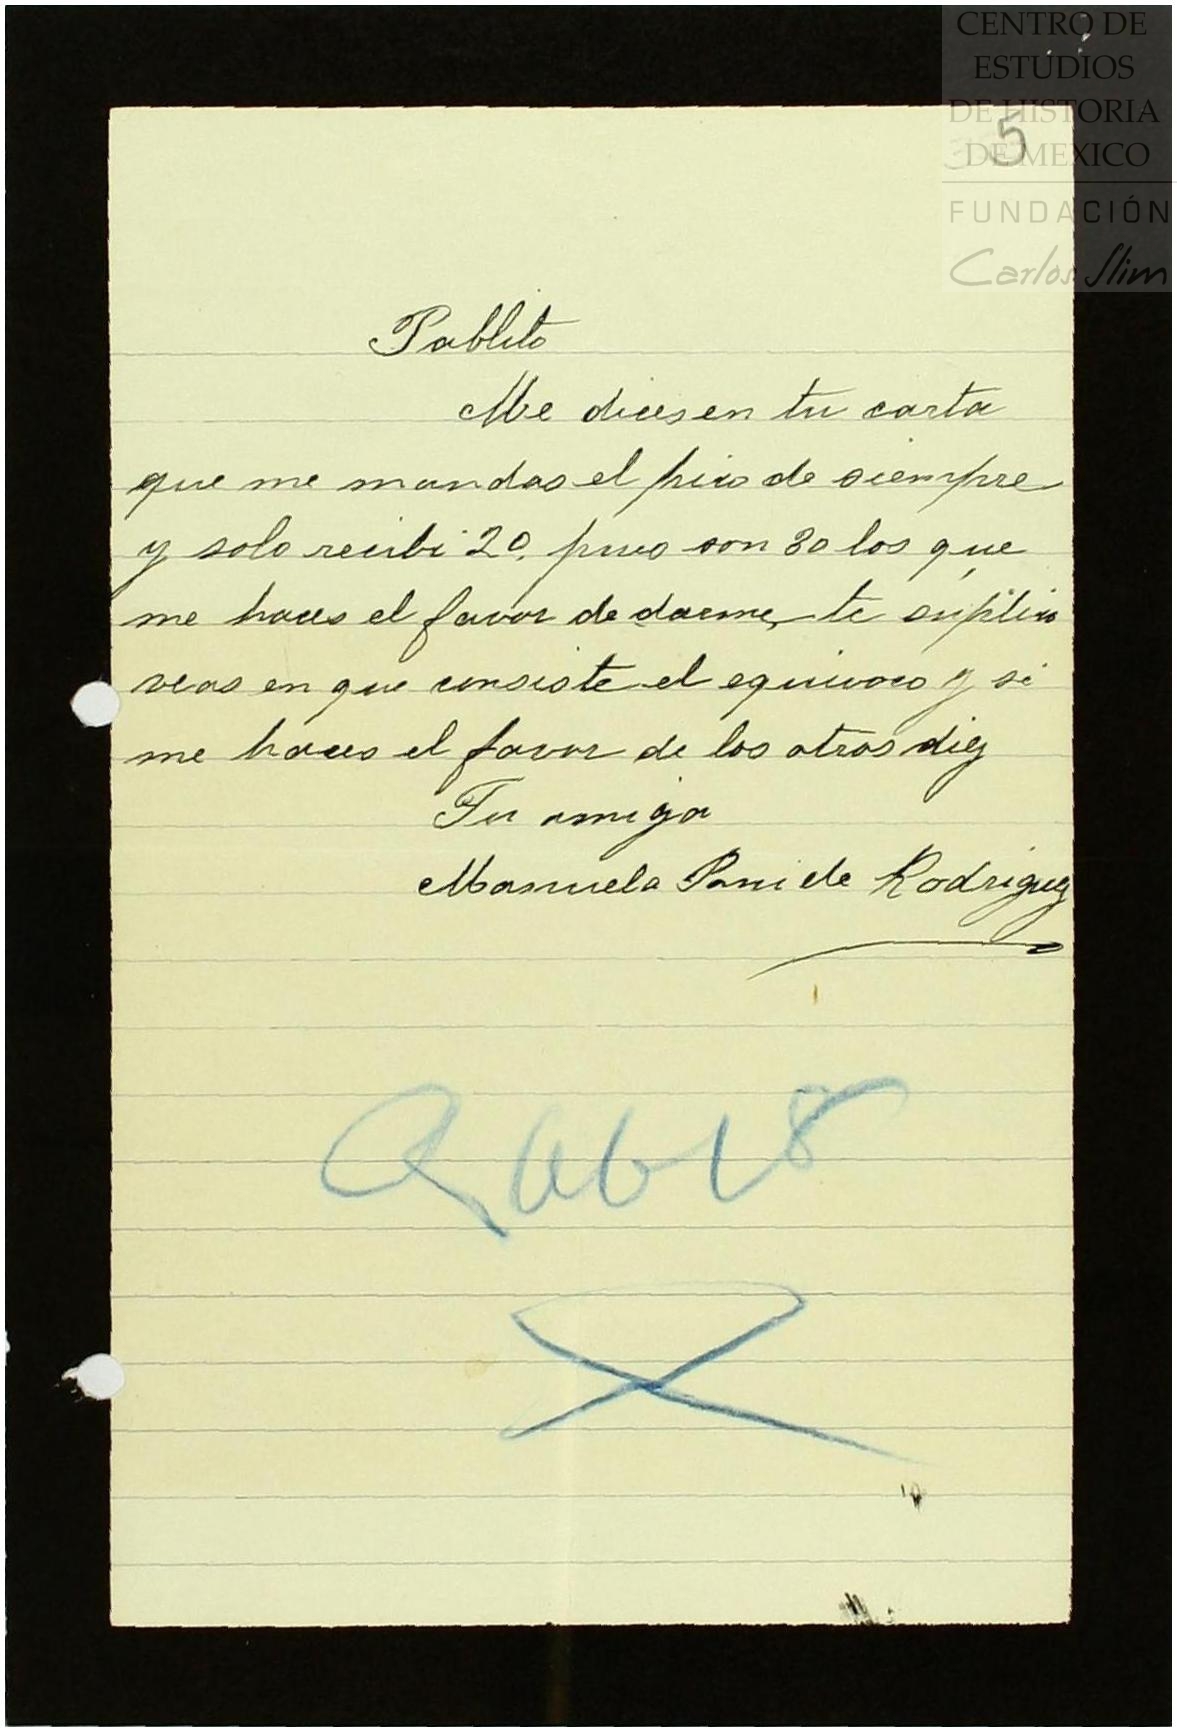 CENTRO DE
ESTUDIOS
DE HISTORIA
DE MEXICO
FUNDACIÓN
Carlos Slim
5
Pablito
Me dices en tu carta
que me mandas el pico de siempre
y solo recibi 20, pues son 30 los que
me haces el favor de darme, te suplico
veas en que consiste el equivoco y si
me haces el favor de los otros diez
Tu amiga
Manuela Pani de Rodriguez